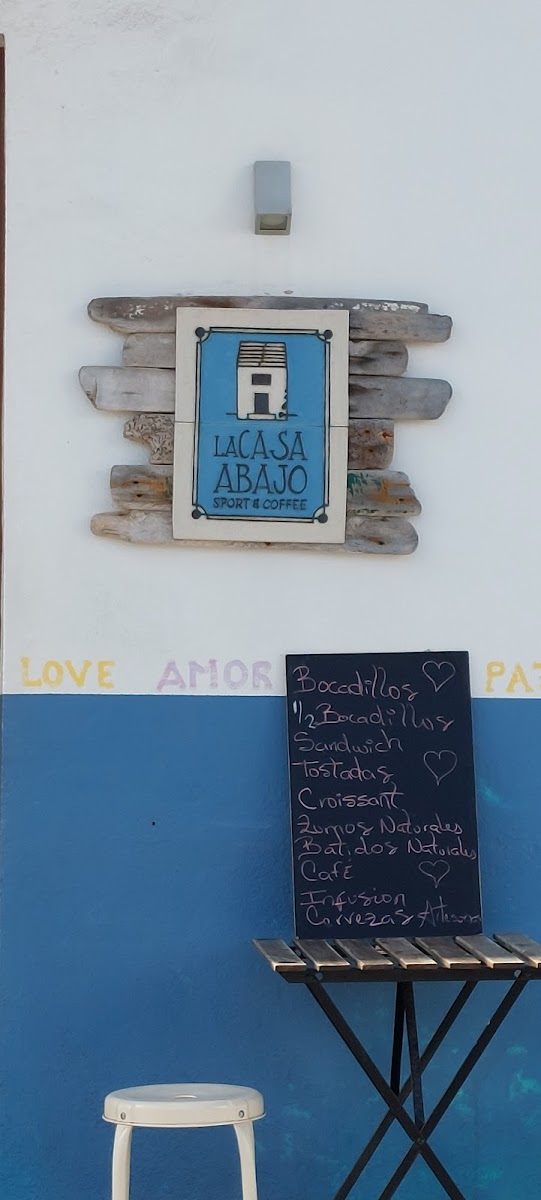 LA CASA
ABAJO
SPORT & COFFEE
LOVE AMOR
Bocadillos
1/2 Bocadillos
Sandwich
Tostadas
Croissant
Zumos Naturales
Batidos Naturales
Café
Infusion
Cervezas